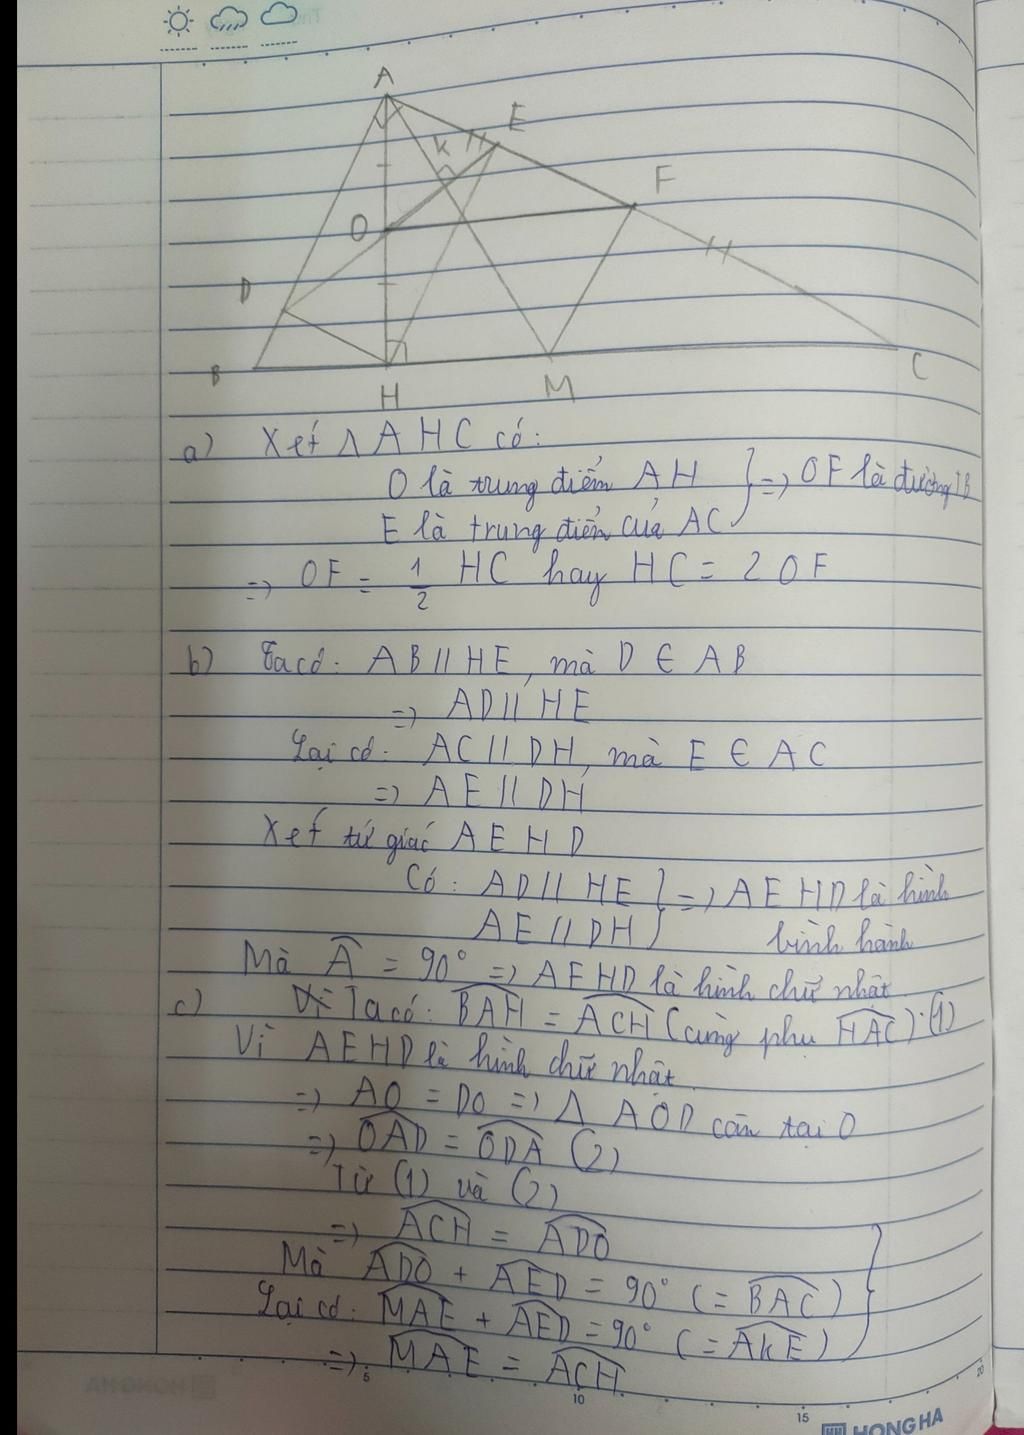 A
E
K
F
O
D
B
H
M
C
a) Xét Δ AHC có:
O là trung điểm AH } => OF là đường TB
E là trung điểm của AC
=> OF = 1/2 HC hay HC = 2 OF
b) Ta có: AB // HE, mà D ∈ AB
=> AD // HE
Lại có: AC // DH, mà E ∈ AC
=> AE // DH
Xét tứ giác AEHD
Có: AD // HE } => AEHD là hình
AE // DH bình hành
Mà Â = 90° => AEHD là hình chữ nhật
c) Vì Ta có: BAH = ACH (cùng phụ HAC) (1)
Vì AEHD là hình chữ nhật
=> AO = DO => Δ AOD cân tại O
=> OAD = ODA (2)
Từ (1) và (2)
=> ACH = ADO
Mà ADO + AED = 90° (= BAC)
Lại có: MAE + AED = 90° (= AKE)
=> MAE = ACH
5
10
15
20
HONG HA